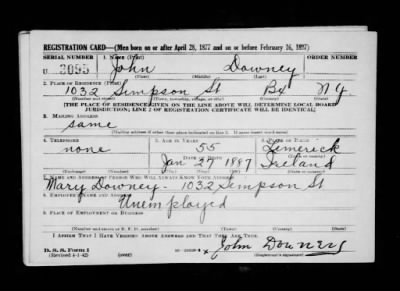 REGISTRATION CARD—(Men born on or after April 28, 1877 and on or before February 16, 1897)
SERIAL NUMBER 1. NAME (Print) ORDER NUMBER
U 3095 John Downey
(First) (Middle) (Last)
2. PLACE OF RESIDENCE (Print)
1032 Simpson St Bx N.Y.
(Number and street) (Town, township, village, or city) (County) (State)
[THE PLACE OF RESIDENCE GIVEN ON THE LINE ABOVE WILL DETERMINE LOCAL BOARD
JURISDICTION; LINE 2 OF REGISTRATION CERTIFICATE WILL BE IDENTICAL]
3. MAILING ADDRESS
same
(Mailing address if other than place indicated on line 2. If same insert word same)
4. TELEPHONE 5. AGE IN YEARS 6. PLACE OF BIRTH
none 55 Limerick
DATE OF BIRTH
Jan 27 1887 Ireland
(Exchange) (Number) (Mo.) (Day) (Yr.) (State or country)
7. NAME AND ADDRESS OF PERSON WHO WILL ALWAYS KNOW YOUR ADDRESS
Mary Downey - 1032 Simpson St
8. EMPLOYER'S NAME AND ADDRESS
Unemployed
9. PLACE OF EMPLOYMENT OR BUSINESS
(Number and street or R. F. D. number) (Town) (County) (State)
I AFFIRM THAT I HAVE VERIFIED ABOVE ANSWERS AND THAT THEY ARE TRUE.
D. S. S. Form 1
(Revised 4-1-42) (over) John Downey
(Registrant's signature)